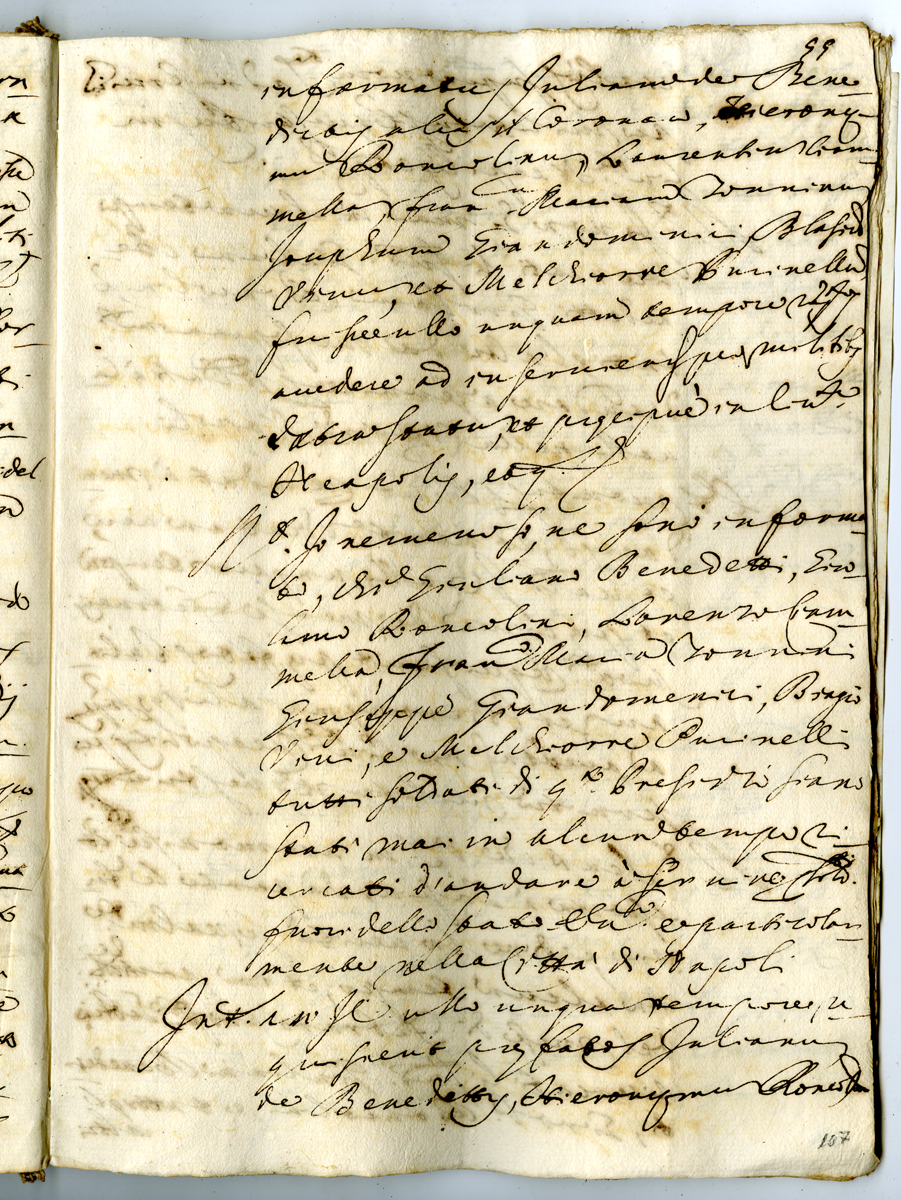 99
informatus Julianus de Bene
dictis alias il Coronaro, Hierony-
mus Roncolinus, Laurentius Ciam-
mella, Fran.cus Maria Tonninus
Joseph Giandominici, Blasius
Vinci, et Melchiorre Pucinellus
fuisse ullo unquam tempore
accedere ad inserviend. pro militibus
extra statum, et precipue in Civit.e
Neapolis, et
R.t Io nemeno so, ne sono informa
to, che Giuliano Benedetti, Giro-
limo Roncolini, Lorenzo Ciam
mella, Fran.co Maria Tonnini
Giuseppe Giandomenici, Biagio
Vinci, e Melchiorre Pucinelli
tutti soldati di q.to Presidio siano
stati mai in alcun tempo ri
cercati d'andare à servire
fuori dello stato e particolar
mente nella Città di Napoli
Int. an ullo unquam tempore re
quisierit prefatos Julianum
de Benedittis, Hieronymum Roncolin
107